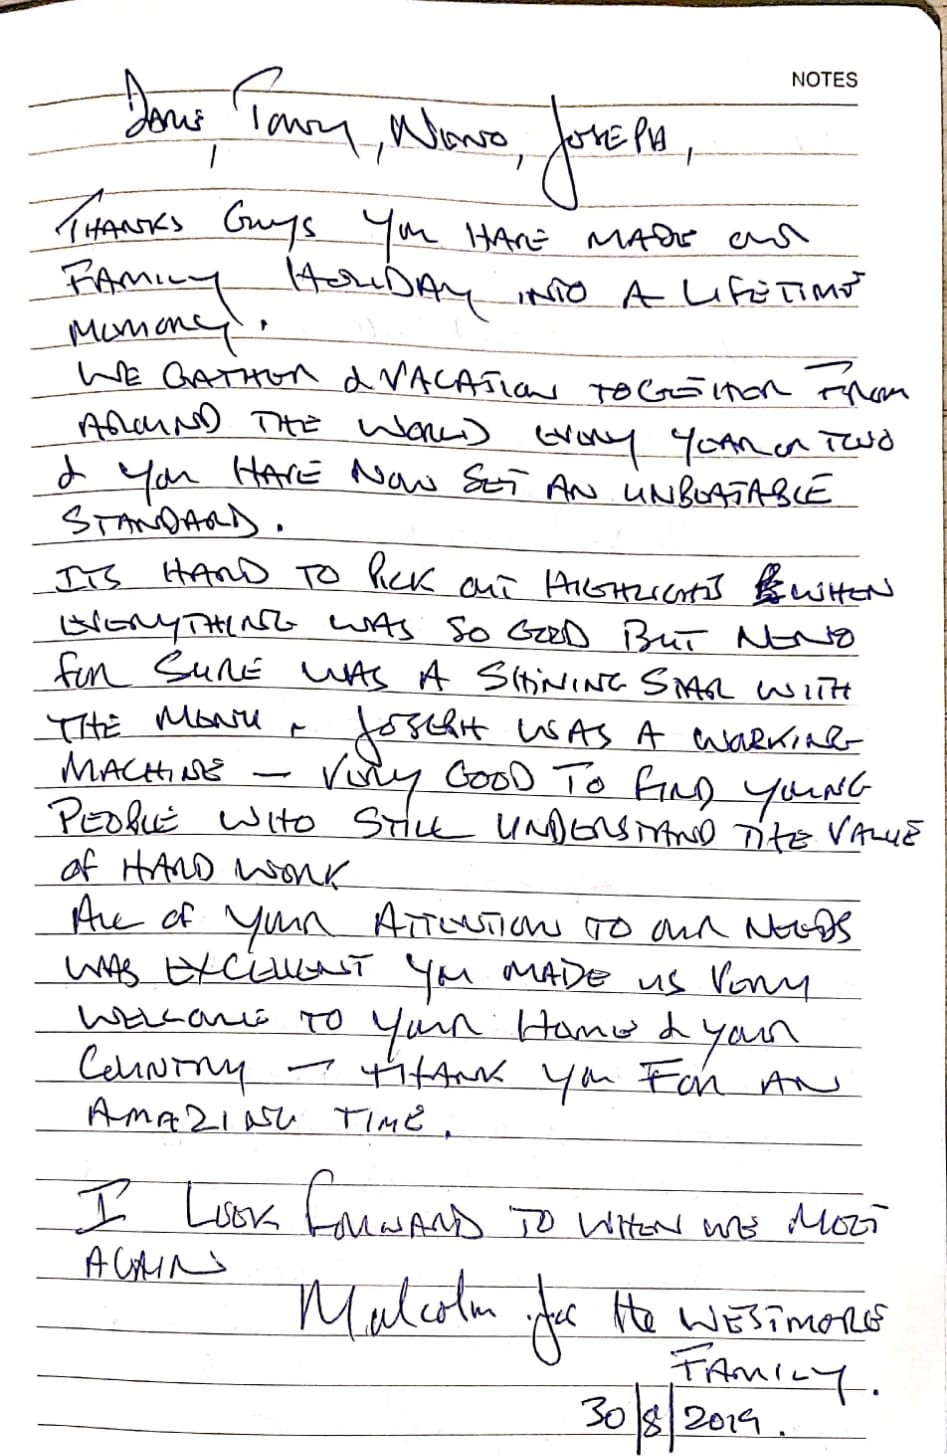 NOTES
Dave, Tony, Neno, JOSEPH,
THANKS Guys You HAVE MADE our
FAMILY HOLIDAY INTO A LIFETIME
MEMORY.
WE GATHER & VACATION TOGETHER FROM
AROUND THE WORLD EVERY YEAR or TWO
& You HAVE NOW SET AN UNBEATABLE
STANDARD.
ITS HARD TO PICK OUT HIGHLIGHTS WHEN
EVERYTHING WAS SO GOOD BUT NENO
for SURE WAS A SHINING STAR WITH
THE MENU & JOSEPH WAS A WORKING
MACHINE — VERY GOOD TO FIND YOUNG
PEOPLE WHO STILL UNDERSTAND THE VALUE
of HARD WORK
ALL OF YOUR ATTENTION TO OUR NEEDS
WAS EXCELLENT YOU MADE US VERY
WELCOME TO YOUR HOME & YOUR
COUNTRY — THANK YOU FOR AN
AMAZING TIME.
I LOOK FORWARD TO WHEN WE MEET
AGAIN
Malcolm for the WESTMORE
FAMILY.
30/8/2019.